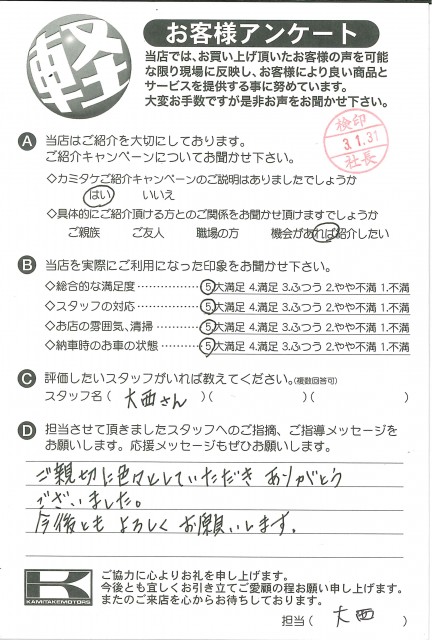 軽
お客様アンケート
当店では、お買い上げ頂いたお客様の声を可能
な限り現場に反映し、お客様により良い商品と
サービスを提供する事に努めています。
大変お手数ですが是非お声をお聞かせ下さい。
検印
3.1.31
社長
A 当店はご紹介を大切にしております。
ご紹介キャンペーンについてお聞かせ下さい。
◇カミタケご紹介キャンペーンのご説明はありましたでしょうか
はい いいえ
◇具体的にご紹介頂ける方とのご関係をお聞かせ頂けますでしょうか
ご親族 ご友人 職場の方 機会があれば紹介したい
B 当店を実際にご利用になった印象をお聞かせ下さい。
◇総合的な満足度……………5.大満足 4.満足 3.ふつう 2.やや不満 1.不満
◇スタッフの対応……………5.大満足 4.満足 3.ふつう 2.やや不満 1.不満
◇お店の雰囲気、清掃………5.大満足 4.満足 3.ふつう 2.やや不満 1.不満
◇納車時のお車の状態………5.大満足 4.満足 3.ふつう 2.やや不満 1.不満
C 評価したいスタッフがいれば教えてください。(複数回答可)
スタッフ名( 大西さん )( )( )
D 担当させて頂きましたスタッフへのご指摘、ご指導メッセージを
お願いします。応援メッセージもぜひお願いします。
ご親切に色々としていただき ありがとう
ございました。
今後とも よろしく お願いします。
K
KAMITAKEMOTORS
ご協力に心よりお礼を申し上げます。
今後とも宜しくお引き立てご愛顧の程お願い申し上げます。
またのご来店を心からお待ちしております。
担当( 大西 )